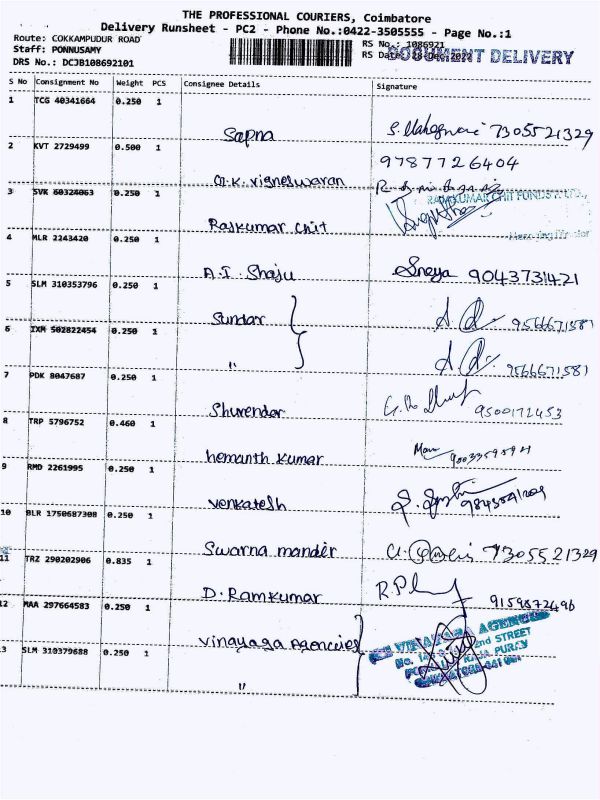 THE PROFESSIONAL COURIERS, Coimbatore
Delivery Runsheet - PC2 - Phone No.:0422-3505555 - Page No.:1
Route: COKKAMPUDUR ROAD
Staff: PONNUSAMY
DRS No.: DCJB108692101
RS No.: 1086921
RS Date: -Dec-
DOCUMENT DELIVERY
S No Consignment No Weight PCS Consignee Details Signature
1 TCG 40341664 0.250 1
Sapna 7305521329
2 KVT 2729499 0.500 1
9787726404
K. Vigneshwaran
3 SVK 60324063 0.250 1
RAMKUMAR CHIT FUNDS
Rajkumar chit
4 MLR 2243420 0.250 1
A.I. Shaju Sneya 9043731421
5 SLM 310353796 0.250 1
Sundar 9566671581
6 IXM 502822454 0.250 1
" 9566671581
7 PDK 8047687 0.250 1
Shurendar 9500172453
8 TRP 5796752 0.460 1
hemanth kumar
9 RMD 2261995 0.250 1
Venkatesh
10 BLR 1750687308 0.250 1
Swarna mandir 7305521329
11 TRZ 290202906 0.835 1
D. Ramkumar 9159872496
12 MAA 297664583 0.250 1
Vinayaga Agencies
VINAYAGA AGENCIES
2nd STREET
13 SLM 310379688 0.250 1
"